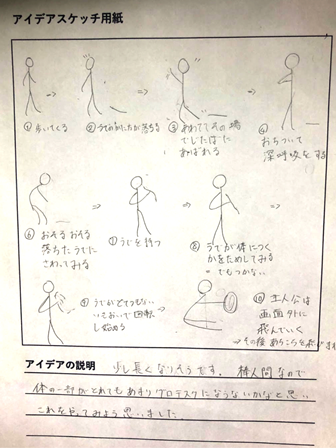 アイデアスケッチ用紙
① 歩いてくる
② うでが落ちる
③ あわててその場
でしたばた
あばれる
④ おちついて
深呼吸をする
⑥ おそるおそる
落ちたうでに
さわってみる
⑦ うでを持つ
⑧ うでが体につく
かをためしてみる
でもつかない
⑨ うでがとてつもない
いきおいで回転
し始める
⑩ 主人公は
画面外に
飛んでいく
→その後
アイデアの説明 少し長くなりそうです。棒人間なので
体の一部がとれてもあまりグロテスクにならないかなと思い
これを 思いました